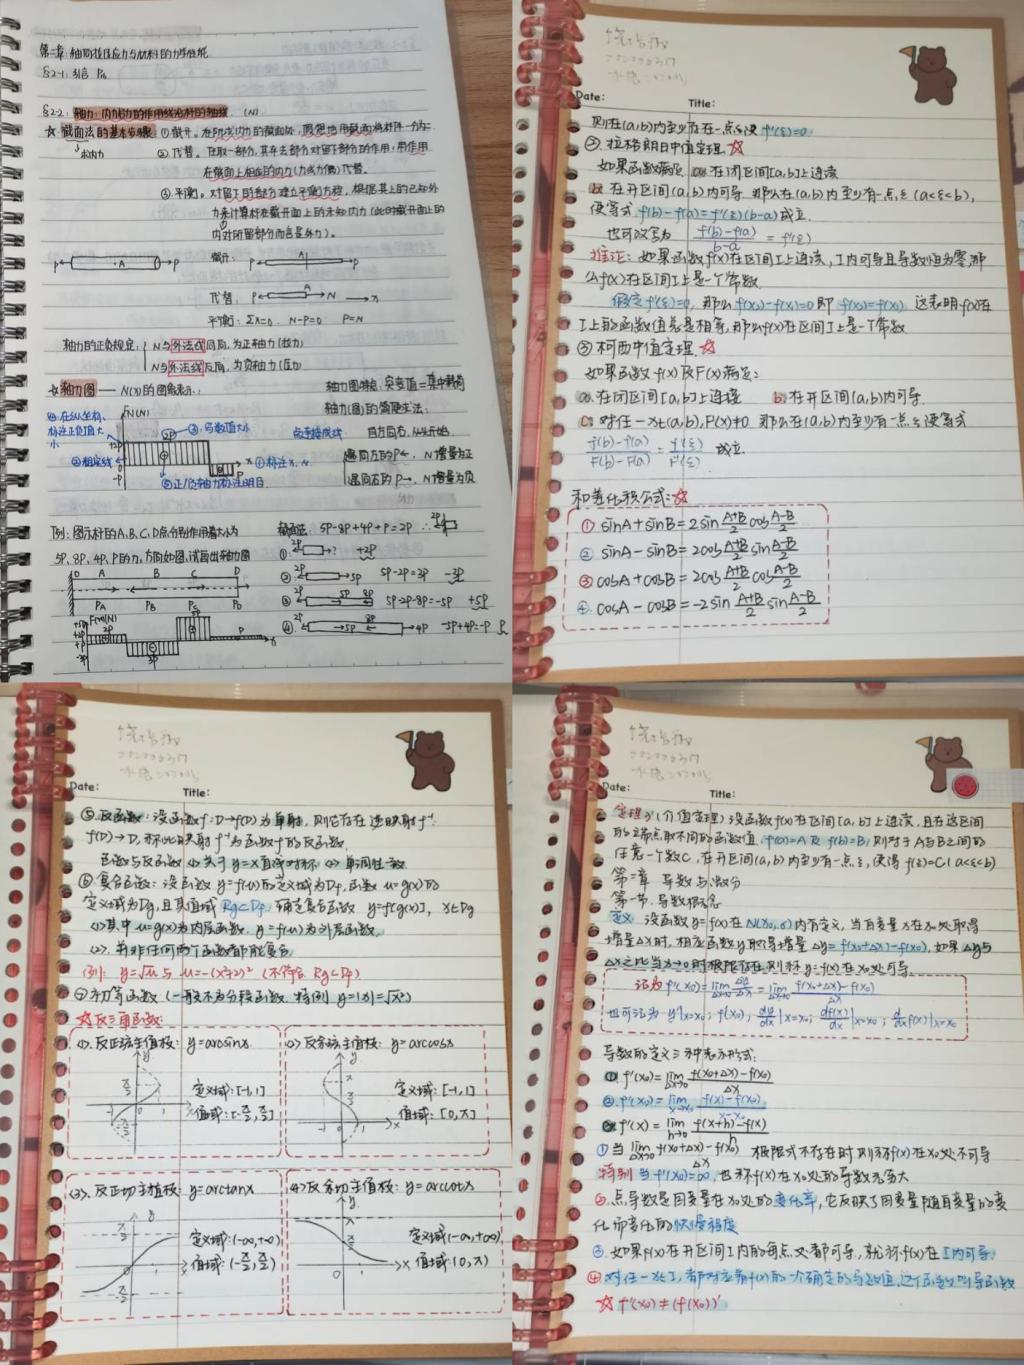 第二章:轴向拉压应力与材料的力学性能
§2-1:引言 P12
§2-2:轴力:内力的作用线沿杆的轴线 (N)
☆截面法的基本步骤 ①截开。在所求内力的截面处,假想地用截面将杆件一分为二
↓求内力 ②代替。任取一部分,其弃去部分对留下部分的作用,用作用
在截面上相应的内力(力或力偶)代替。
③平衡。对留下的部分建立平衡方程,根据其上的已知外
力来计算杆在截开面上的未知内力(此时截开面上的
内力对所留部分而言是外力)。
P A P 截开: P A P
代替: P A N x
平衡: Σx=0 N-P=0 P=N
轴力的正负规定: N与外法线同向,为正轴力(拉力)
N与外法线反向,为负轴力(压力)
☆轴力图—— N(x)的图象表示: 轴力图特点:突变值=集中载荷
轴力(图)的简便求法:
自左向右,从头开始
遇到向左的P←, N增量为正
遇到向右的P→, N增量为负
例:图示杆的A、B、C、D点分别作用着大小为
5P、8P、4P、P的力,方向如图,试画出轴力图
截面法: 5P-8P+4P+P=2P
① 2P ? +2P
② 2P 5P 5P-2P=3P -3P
③ 2P 5P 8P 5P-2P-8P=-5P +5P
④ 2P 5P 8P 4P -5P+4P=-P P
O A B C D
PA PB PC PD
Date: Title:
则在(a,b)内至少存在一点ξ使f'(ξ)=0
②.拉格朗日中值定理☆
如果函数满足 a.在闭区间[a,b]上连续
b.在开区间(a,b)内可导 那么在(a,b)内至少有一点ξ(a<ξ<b),
使等式 f(b)-f(a)=f'(ξ)(b-a)成立.
也可改写为 f(b)-f(a)/b-a = f'(ξ)
推论:如果函数f(x)在区间I上连续,I内可导且导数恒为零,那
么f(x)在区间I上是一个常数.
假定f'(ξ)=0,那么f(x₂)-f(x₁)=0即f(x₂)=f(x₁) 这表明f(x)在
I上的函数值总是相等,那么f(x)在区间I上是一个常数
③柯西中值定理☆
如果函数f(x)及F(x)满足:
a.在闭区间[a,b]上连续 b.在开区间(a,b)内可导.
c.对任一x∈(a,b),F'(x)≠0 那么在(a,b)内至少有一点ξ使等式
f(b)-f(a)/F(b)-F(a) = f'(ξ)/F'(ξ) 成立.
和差化积公式:☆
① sinA+sinB=2sin A+B/2 cos A-B/2
② sinA-sinB=2cos A+B/2 sin A-B/2
③ cosA+cosB=2cos A+B/2 cos A-B/2
④. cosA-cosB=-2sin A+B/2 sin A-B/2
Date: Title:
⑤反函数:设函数f:D→f(D)为单射,则它存在逆映射f⁻¹:
f(D)→D,称此映射f⁻¹为函数f的反函数.
函数与反函数 <1>关于y=x直线对称 <2>单调性一致
⑥复合函数:设函数y=f(u)的定义域为Df,函数u=g(x)的
定义域为Dg,且其值域Rg⊂Df 确定复合函数 y=f[g(x)], x∈Dg
<1>其中u=g(x)为内层函数,y=f(u)为外层函数.
<2>.并非任何两个函数都能复合
例:y=√u与u=-(x²+2)² (不符合Rg⊂Df)
⑦初等函数(一般不为分段函数,特例y=|x|=√x²)
☆反三角函数:
<1>.反正弦主值枝: y=arcsinx
定义域:[-1,1]
值域:[-π/2,π/2]
<2>反余弦主值枝: y=arccosx
定义域:[-1,1]
值域:[0,π]
<3>、反正切主值枝: y=arctanx
定义域:(-∞,+∞)
值域:(-π/2,π/2)
<4>反余切主值枝: y=arccotx
定义域(-∞,+∞)
值域:(0,π)
Date: Title:
定理3(介值定理)设函数f(x)在区间[a,b]上连续,且在这区间
的端点取不同的函数值,f(a)=A及f(b)=B,则对于A与B之间的
任意一个数C,在开区间(a,b)内至少有一点ξ,使得f(ξ)=C(a<ξ<b)
第二章 导数与微分
第一节.导数概念
定义 设函数y=f(x)在N(x₀,δ)内有定义,当自变量x在x₀处取得
增量Δx时,相应函数y取得增量Δy=f(x₀+Δx)-f(x₀),如果Δy与
Δx之比当Δx→0时极限存在,则称y=f(x)在x₀处可导.
记为f'(x₀)=lim Δx→0 Δy/Δx = lim Δx→0 f(x₀+Δx)-f(x₀)/Δx
也可记为 y'|x=x₀; f'(x₀); dy/dx|x=x₀; df(x)/dx|x=x₀; d/dx f(x)|x=x₀
导数的定义三种表示形式:
① f'(x₀)=lim Δx→0 f(x₀+Δx)-f(x₀)/Δx
②. f'(x₀)=lim x→x₀ f(x)-f(x₀)/x-x₀
③ f'(x)=lim h→0 f(x+h)-f(x)/h
①当lim Δx→0 f(x₀+Δx)-f(x₀)/Δx 极限式不存在时,则称f(x)在x₀处不可导
特别 当f'(x₀)=∞,也称f(x)在x₀处的导数无穷大
②.点导数是因变量在x₀处的变化率,它反映了因变量随自变量的变
化而变化的快慢程度
③.如果f(x)在开区间I内的每点处都可导,就称f(x)在I内可导.
④对任一x∈I,都对应着f(x)的一个确定的导数值,这个函数叫导函数
☆f'(x₀)≠(f(x₀))'